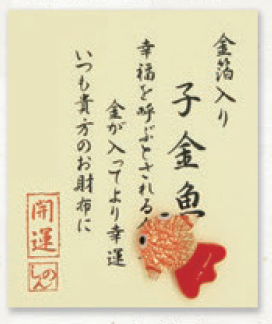 金箔入り
子金魚
幸福を呼ぶとされる
金が入ってより幸運
いつも貴方のお財布に
開運
しのん